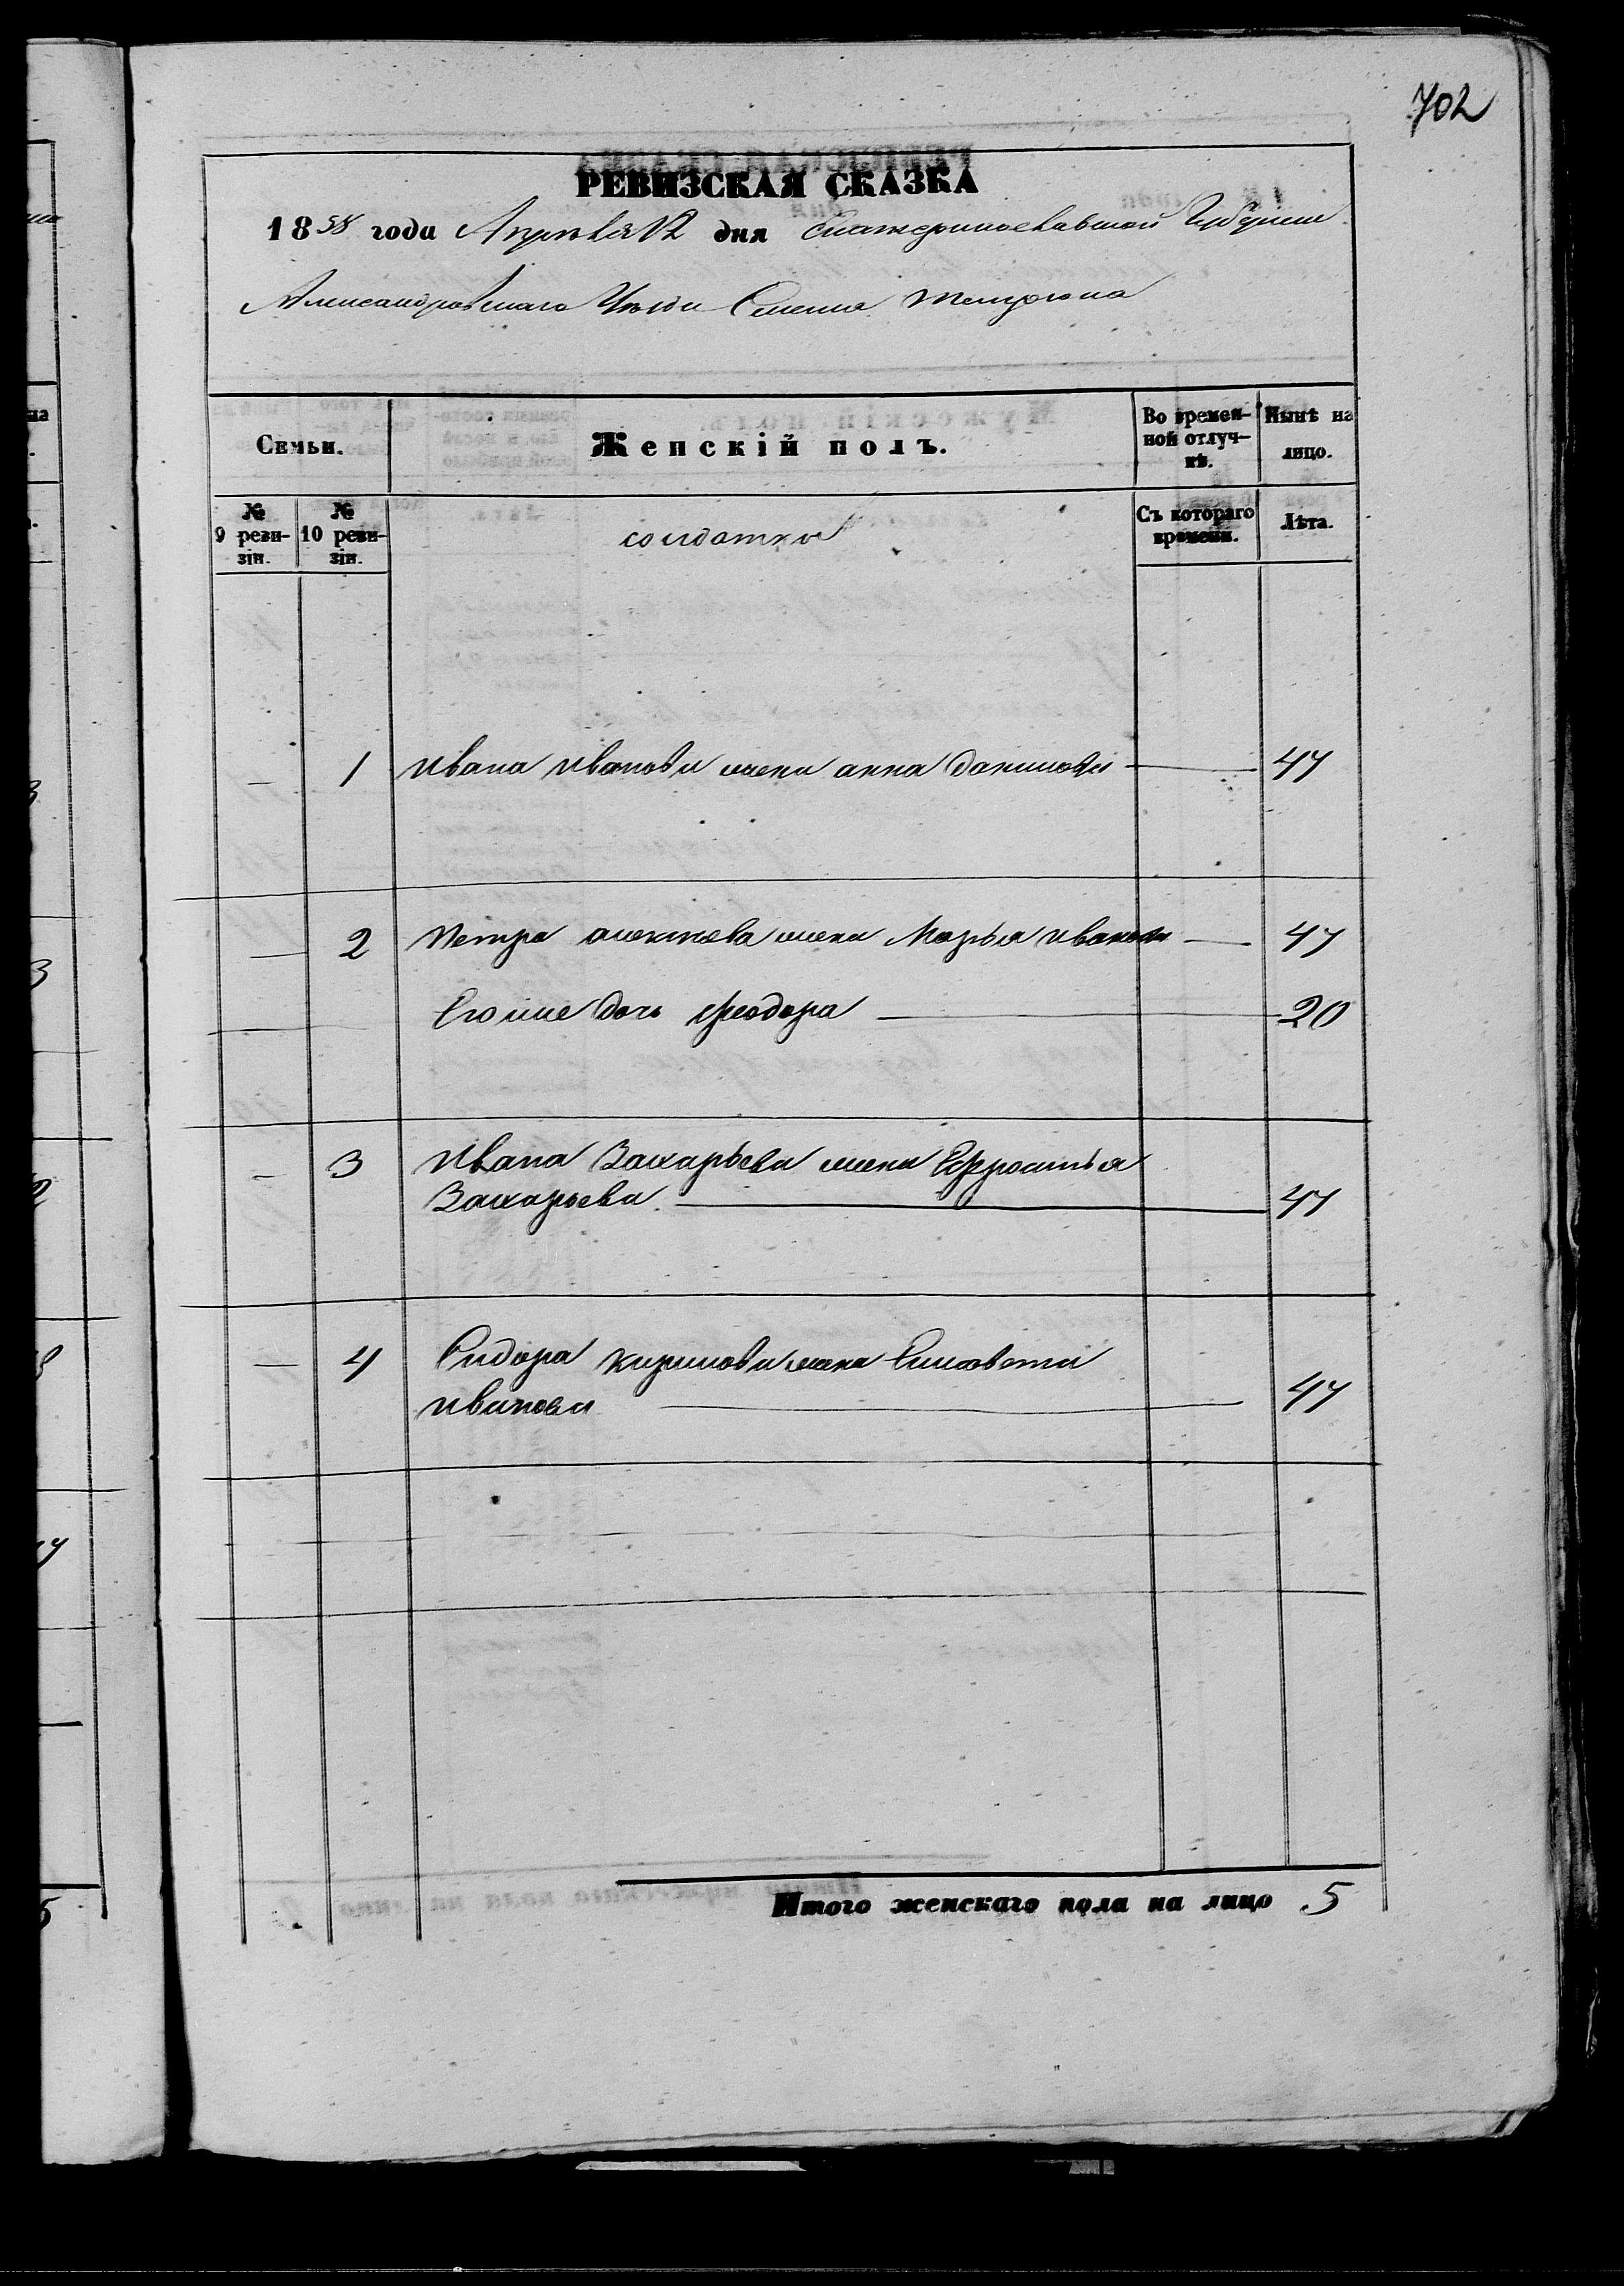 702
РЕВИЗСКАЯ СКАЗКА
1858 года Апреля 12 дня Екатеринославской Губернии
Александровскаго Уезда Села
Семьи.
Женскій полъ.
Во времен-
ной отлуч-
кѣ.
Нынѣ на
лицо.
№
9 реви-
зіи.
№
10 реви-
зіи.
солдатки
Съ котораго
времени.
Лѣта.
— 1 Ивана Иванова жена анна данилова — 47
— 2 Петра алексеева жена Марья иванова — 47
Его же дочь феодора — 20
— 3 Ивана Захарьева жена Ефросинья
Захарьева. — 47
— 4 Сидора кирилова жена Елисавета
иванова — 47
Итого женскаго пола на лицо 5